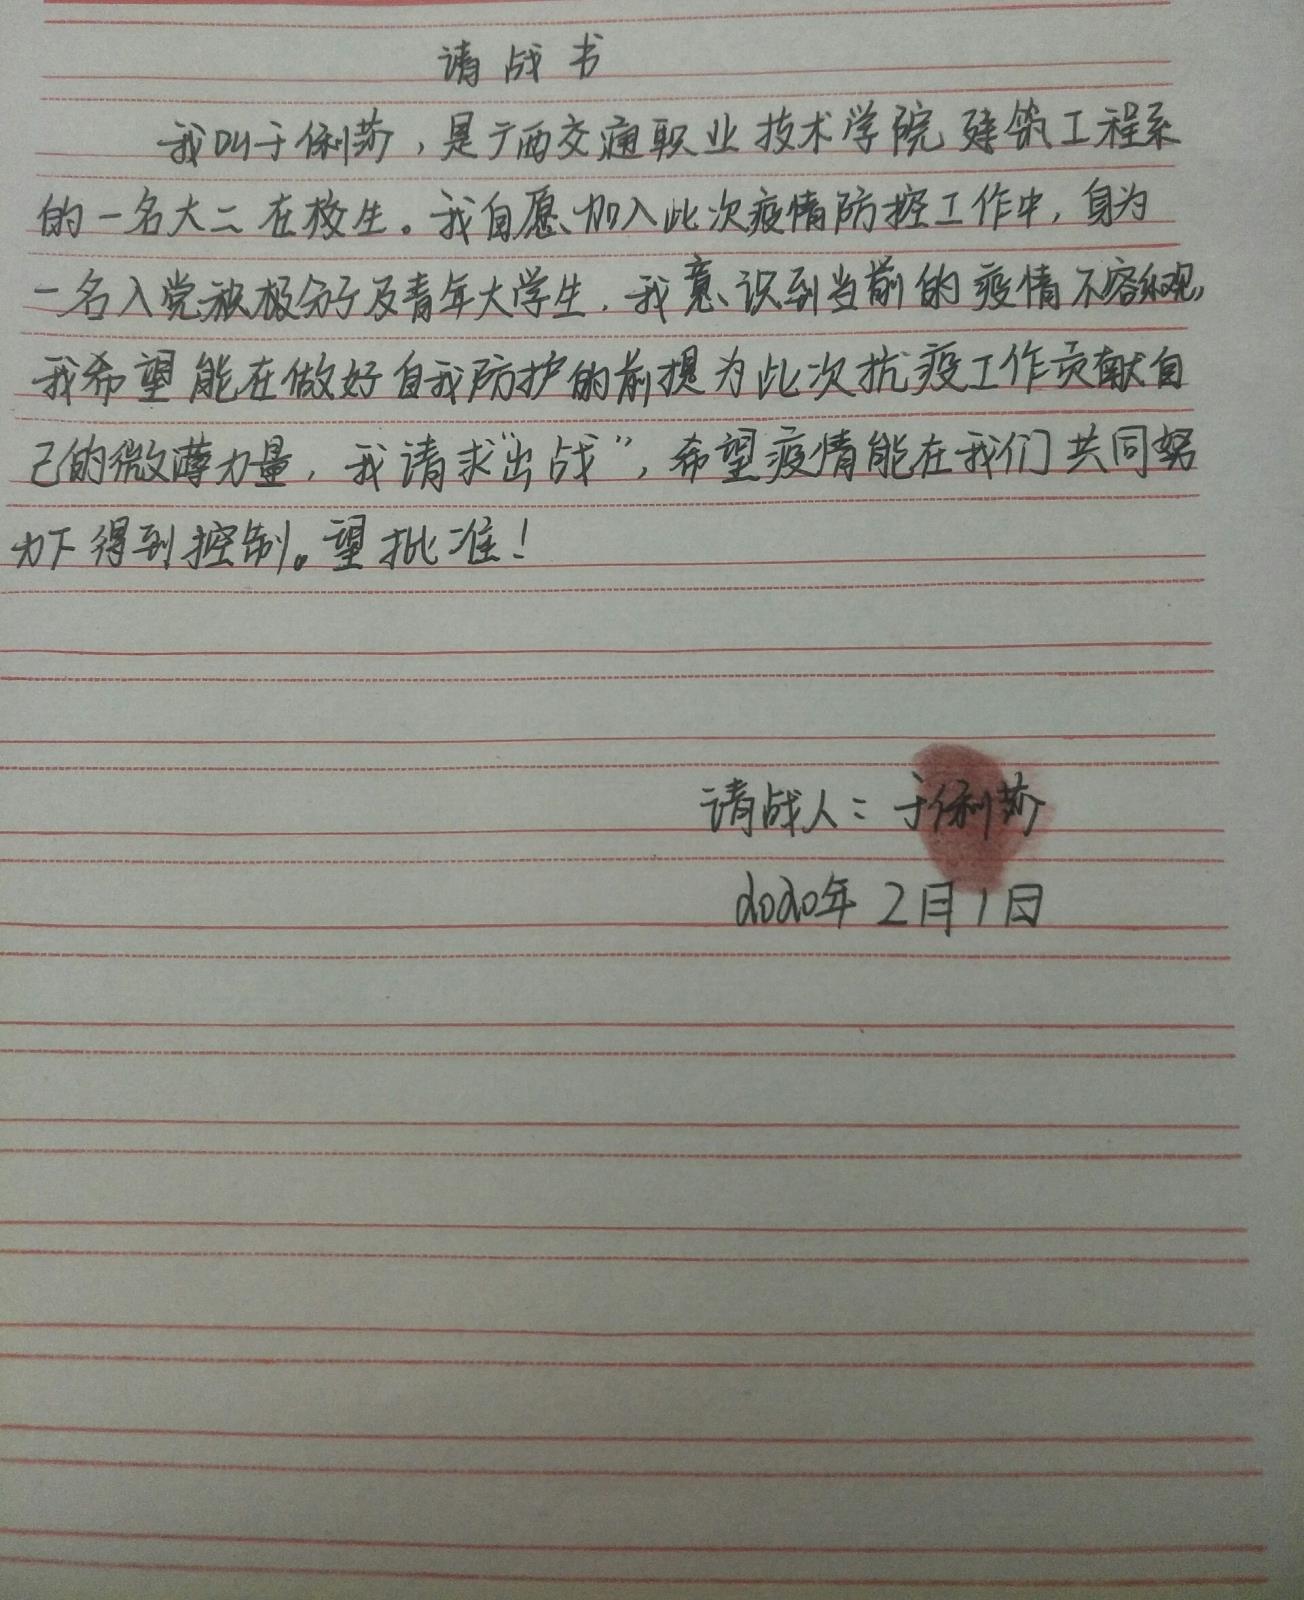 请战书
我叫于俐莎,是广西交通职业技术学院建筑工程系
的一名大二在校生。我自愿加入此次疫情防控工作中,身为
一名入党积极分子及青年大学生,我意识到当前的疫情不容乐观,
我希望能在做好自我防护的前提为此次抗疫工作贡献自
己的微薄力量,我请求“出战”,希望疫情能在我们共同努
力下得到控制。望批准!
请战人:于俐莎
2020年2月1日